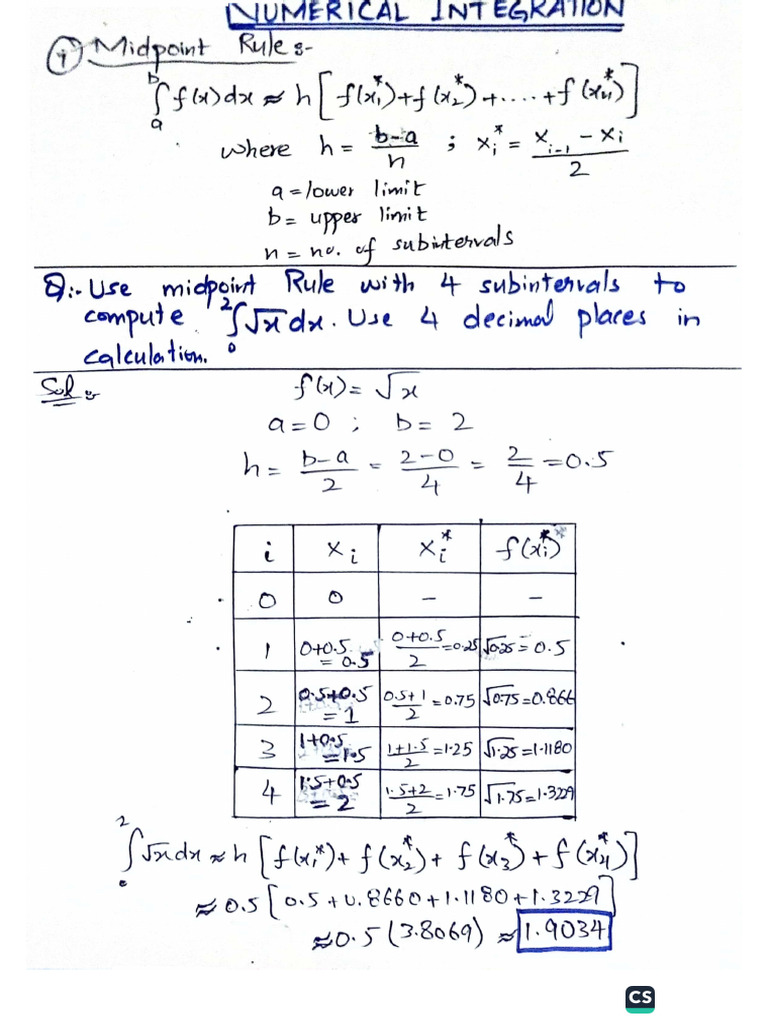 NUMERICAL INTEGRATION
(i) Midpoint Rule :-
∫ₐᵇ f(x)dx ≈ h[f(x₁*)+f(x₂*)+....+f(xₙ*)]
where h = (b-a)/n ; xᵢ* = (xᵢ₋₁ - xᵢ)/2
a = lower limit
b = upper limit
n = no. of subintervals
Q:- Use midpoint Rule with 4 subintervals to
compute ∫₀² √x dx. Use 4 decimal places in
calculation.
Sol :-
f(x) = √x
a = 0 ; b = 2
h = (b-a)/2 = (2-0)/4 = 2/4 = 0.5
i xᵢ xᵢ* f(xᵢ*)
0 0 – –
1 0+0.5 = 0.5 (0+0.5)/2 = 0.25 √0.25 = 0.5
2 0.5+0.5 = 1 (0.5+1)/2 = 0.75 √0.75 = 0.866
3 1+0.5 = 1.5 (1+1.5)/2 = 1.25 √1.25 = 1.1180
4 1.5+0.5 = 2 (1.5+2)/2 = 1.75 √1.75 = 1.3229
∫₀² √x dx ≈ h[f(x₁*) + f(x₂*) + f(x₃*) + f(x₄*)]
≈ 0.5[0.5 + 0.8660 + 1.1180 + 1.3229]
≈ 0.5(3.8069) ≈ 1.9034
CS